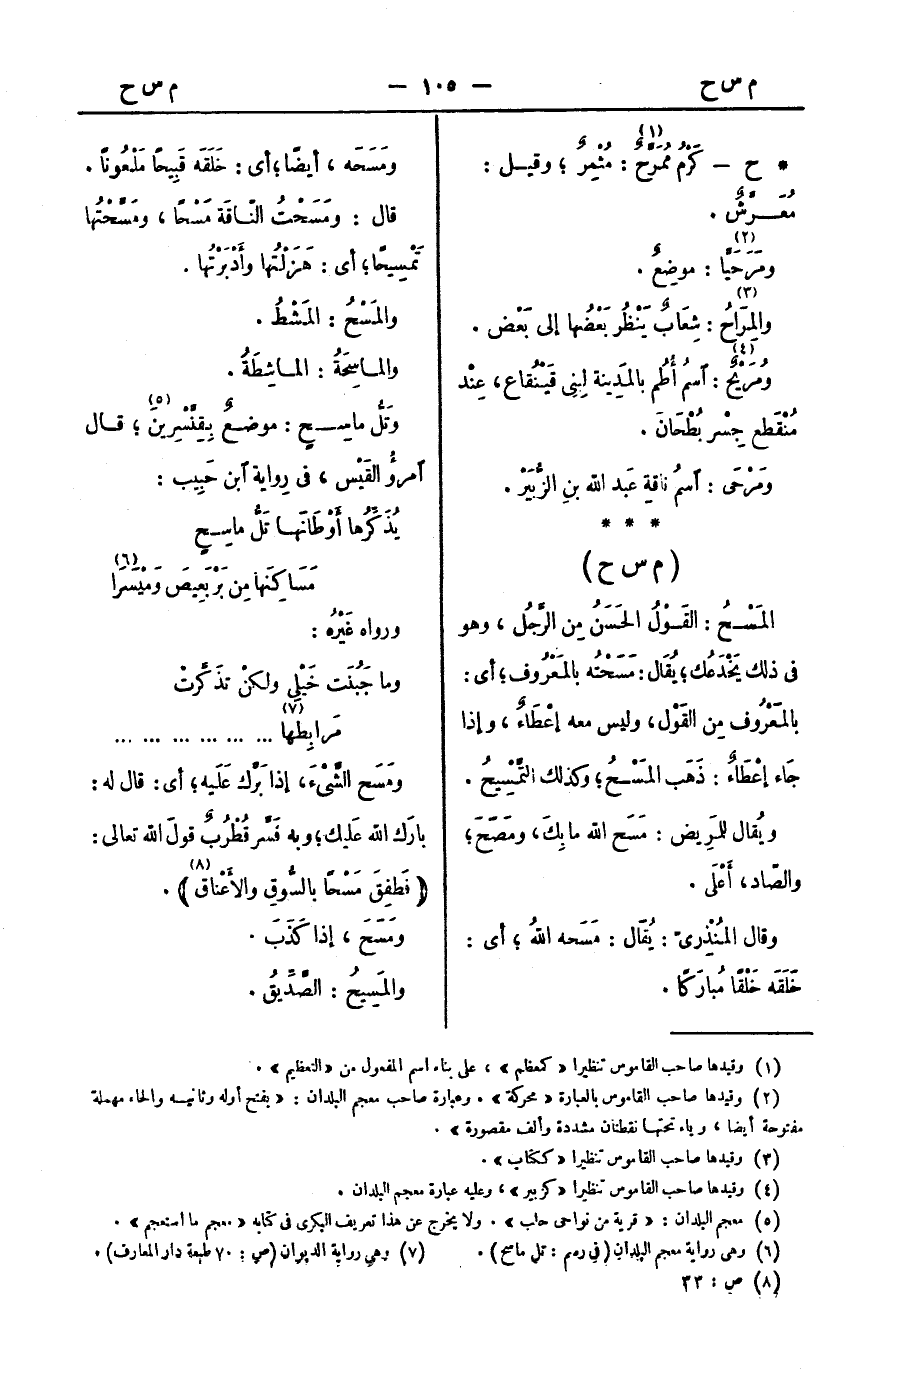 م س ح — ١٠٥ — م س ح
* ح — كَرْم مُمَرَّحٌ (١) : مُثْمِرٌ ؛ وقيل :
مُعَرَّشٌ .
ومَرَحَيَّا (٢) : موضعٌ .
والمِرَاحُ (٣) : شِعَابٌ يَنْظُر بَعْضُها إلى بَعْض .
ومُرَيْحٌ (٤) : ٱسمُ أُطُم بالمَدِينة لِبَنِى قَيْنُقاع ، عِنْد
مُنْقَطع جِسْر بُطْحَانَ .
ومَرْحَى : ٱسمُ ناقةِ عَبد الله بنِ الزُّبَيْر .
* * *
(م س ح)
المَسْحُ : القَوْلُ الحَسَنُ مِن الرَّجُل ، وهو
فى ذلك يَخْدَعُك ؛ يُقَال : مَسَحْتُه بالمَعْرُوف ؛ أى :
بالمَعْرُوف مِن القَوْل ، وليس معه إعْطَاءٌ ، وإذا
جَاء إعْطَاءٌ : ذَهَب المَسْحُ ؛ وكذلك التَّمْسِيحُ .
ويُقال للمَرِيض : مَسَح الله ما بِكَ ، ومَصَحَ ؛
والصّاد ، أَعْلَى .
وقال المُنْذِرىّ : يُقَال : مَسَحه اللهُ ؛ أى :
خَلَقَه خَلْقًا مُبارَكًا .
ومَسَحَه ، أيضًا ؛ أى : خَلَقَه قَبِيحًا مَلْعُونًا .
قال : ومَسَحْتُ النّاقَة مَسْحًا ، ومَسَّحْتُها
تَمْسِيحًا ؛ أى : هَزَلْتُها وأَدْبَرْتُها .
والمَسْحُ : المَشْطُ .
والماسِحَةُ : الماشِطَةُ .
وتَلُّ ماسِحٍ : موضعٌ بِقِنَّسْرِينَ (٥) ؛ قال
ٱمرؤُ القَيْس ، فى رِواية ٱبن حَبِيب :
يُذَكِّرُها أَوْطَانَها تَلُّ ماسِحٍ
مَسَاكِنَها مِن بَرْبَعِيصَ ومَيْسَرَا (٦)
ورواه غَيْرُه :
وما جَبُنَت خَيْلِى ولكنْ تذكَّرتْ
مَرابِطها (٧) ... ... ... ... ... ...
ومَسَح الشَّىْءَ ، إذا بَرَّك عَلَيه ؛ أى : قال له :
بارَك الله عَليك ؛ وبه فَسَّر قُطْرُبٌ قولَ الله تعالى :
﴿ فَطَفِقَ مَسْحًا بالسُّوقِ والأَعْناق ﴾ (٨) .
ومَسَحَ ، إذا كَذَبَ .
والمَسِيحُ : الصِّدِّيقُ .
(١) وقيدها صاحب القاموس تنظيرا « كمعظم » ، على بناء اسم المفعول من « التعظيم » .
(٢) وقيدها صاحب القاموس بالعبارة « محركة » . وعبارة صاحب معجم البلدان : « بفتح أوله وثانيه والحاء مهملة
مفتوحة أيضا ، وياء تحتها نقطتان مشددة وألف مقصورة » .
(٣) وقيدها صاحب القاموس تنظيرا « ككتاب » .
(٤) وقيدها صاحب القاموس تنظيرا « كزبير » ، وعليه عبارة معجم البلدان .
(٥) معجم البلدان : « قرية من نواحى حلب » . ولا يخرج عن هذا تعريف البكرى فى كتابه « معجم ما استعجم » .
(٦) وهى رواية معجم البلدان (فى رسم : تل ماسح) . (٧) وهى رواية الديوان (ص : ٧٠ طبعة دار المعارف) .
(٨) ص : ٣٣